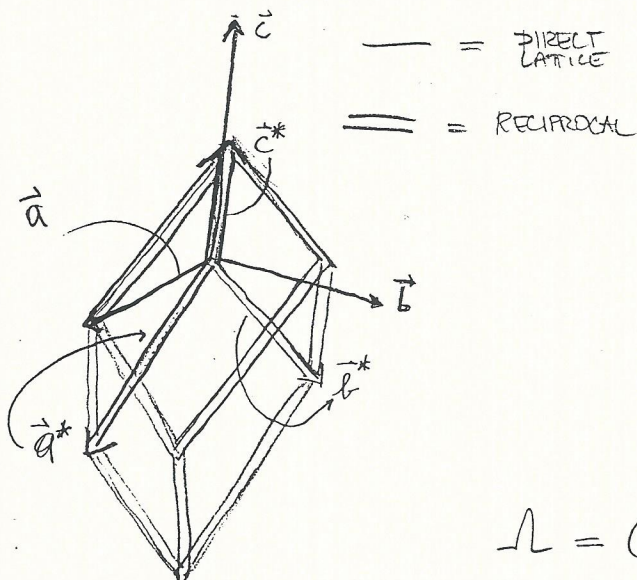 c⃗
— = DIRECT
LATTICE
c⃗*
═ = RECIPROCAL
a⃗
b⃗
b⃗*
a⃗*
Ω = (